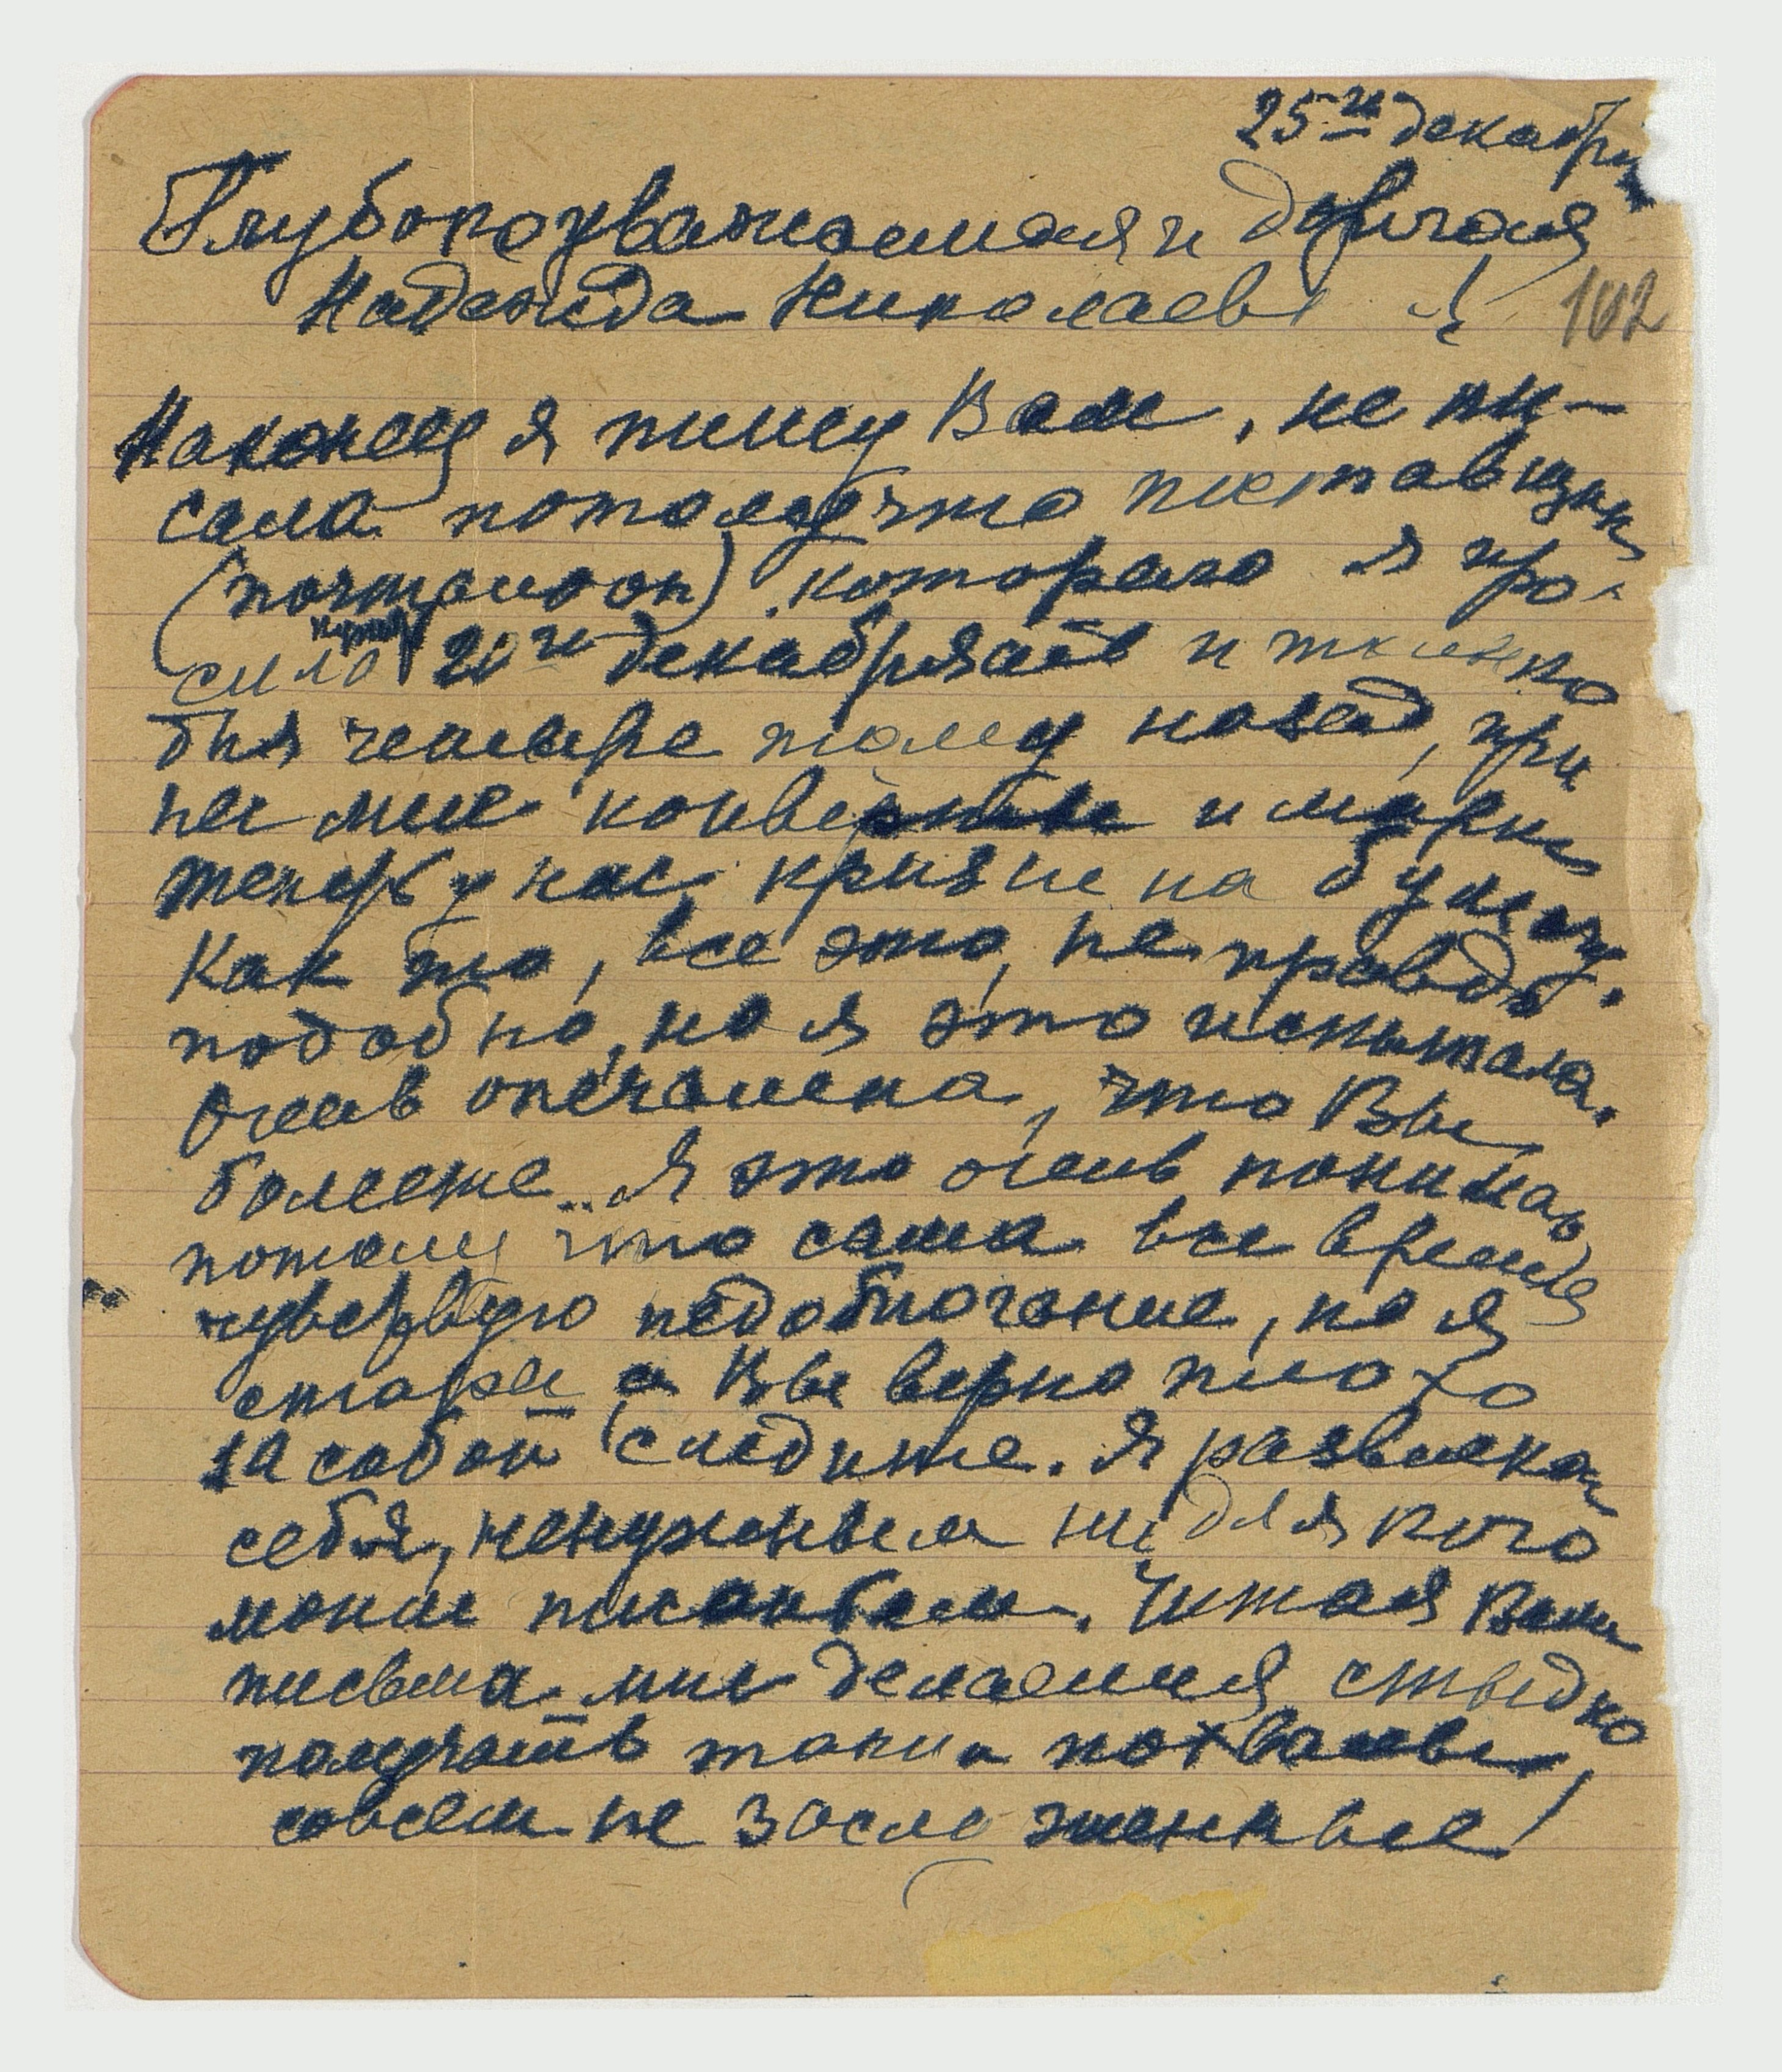 25го декабря
Глубокоуважаемая и дорогая
Надежда Николаев !
102
Наконец я пишу Вам, не пи-
сала потому что поставщик
(почталион) которого я про-
сила купить 20го декабря и только
дня четыре тому назад,
мне конверты и марки
теперь у нас кризис на бумагу.
Как то, все это, не правдо
подобно, но я это испытала.
Очень опечалена, что Вы
болеете.. Я это очень понимаю
потому что сама все время
чувствую недомогание, но я
стара а Вы верно плохо
за собой следите. Я развлекаю
себя, ненужным ни для кого
моим писаньем. Читая Ваши
письма мне делается стыдно
получать такия похвалы,
совсем не заслуженные!